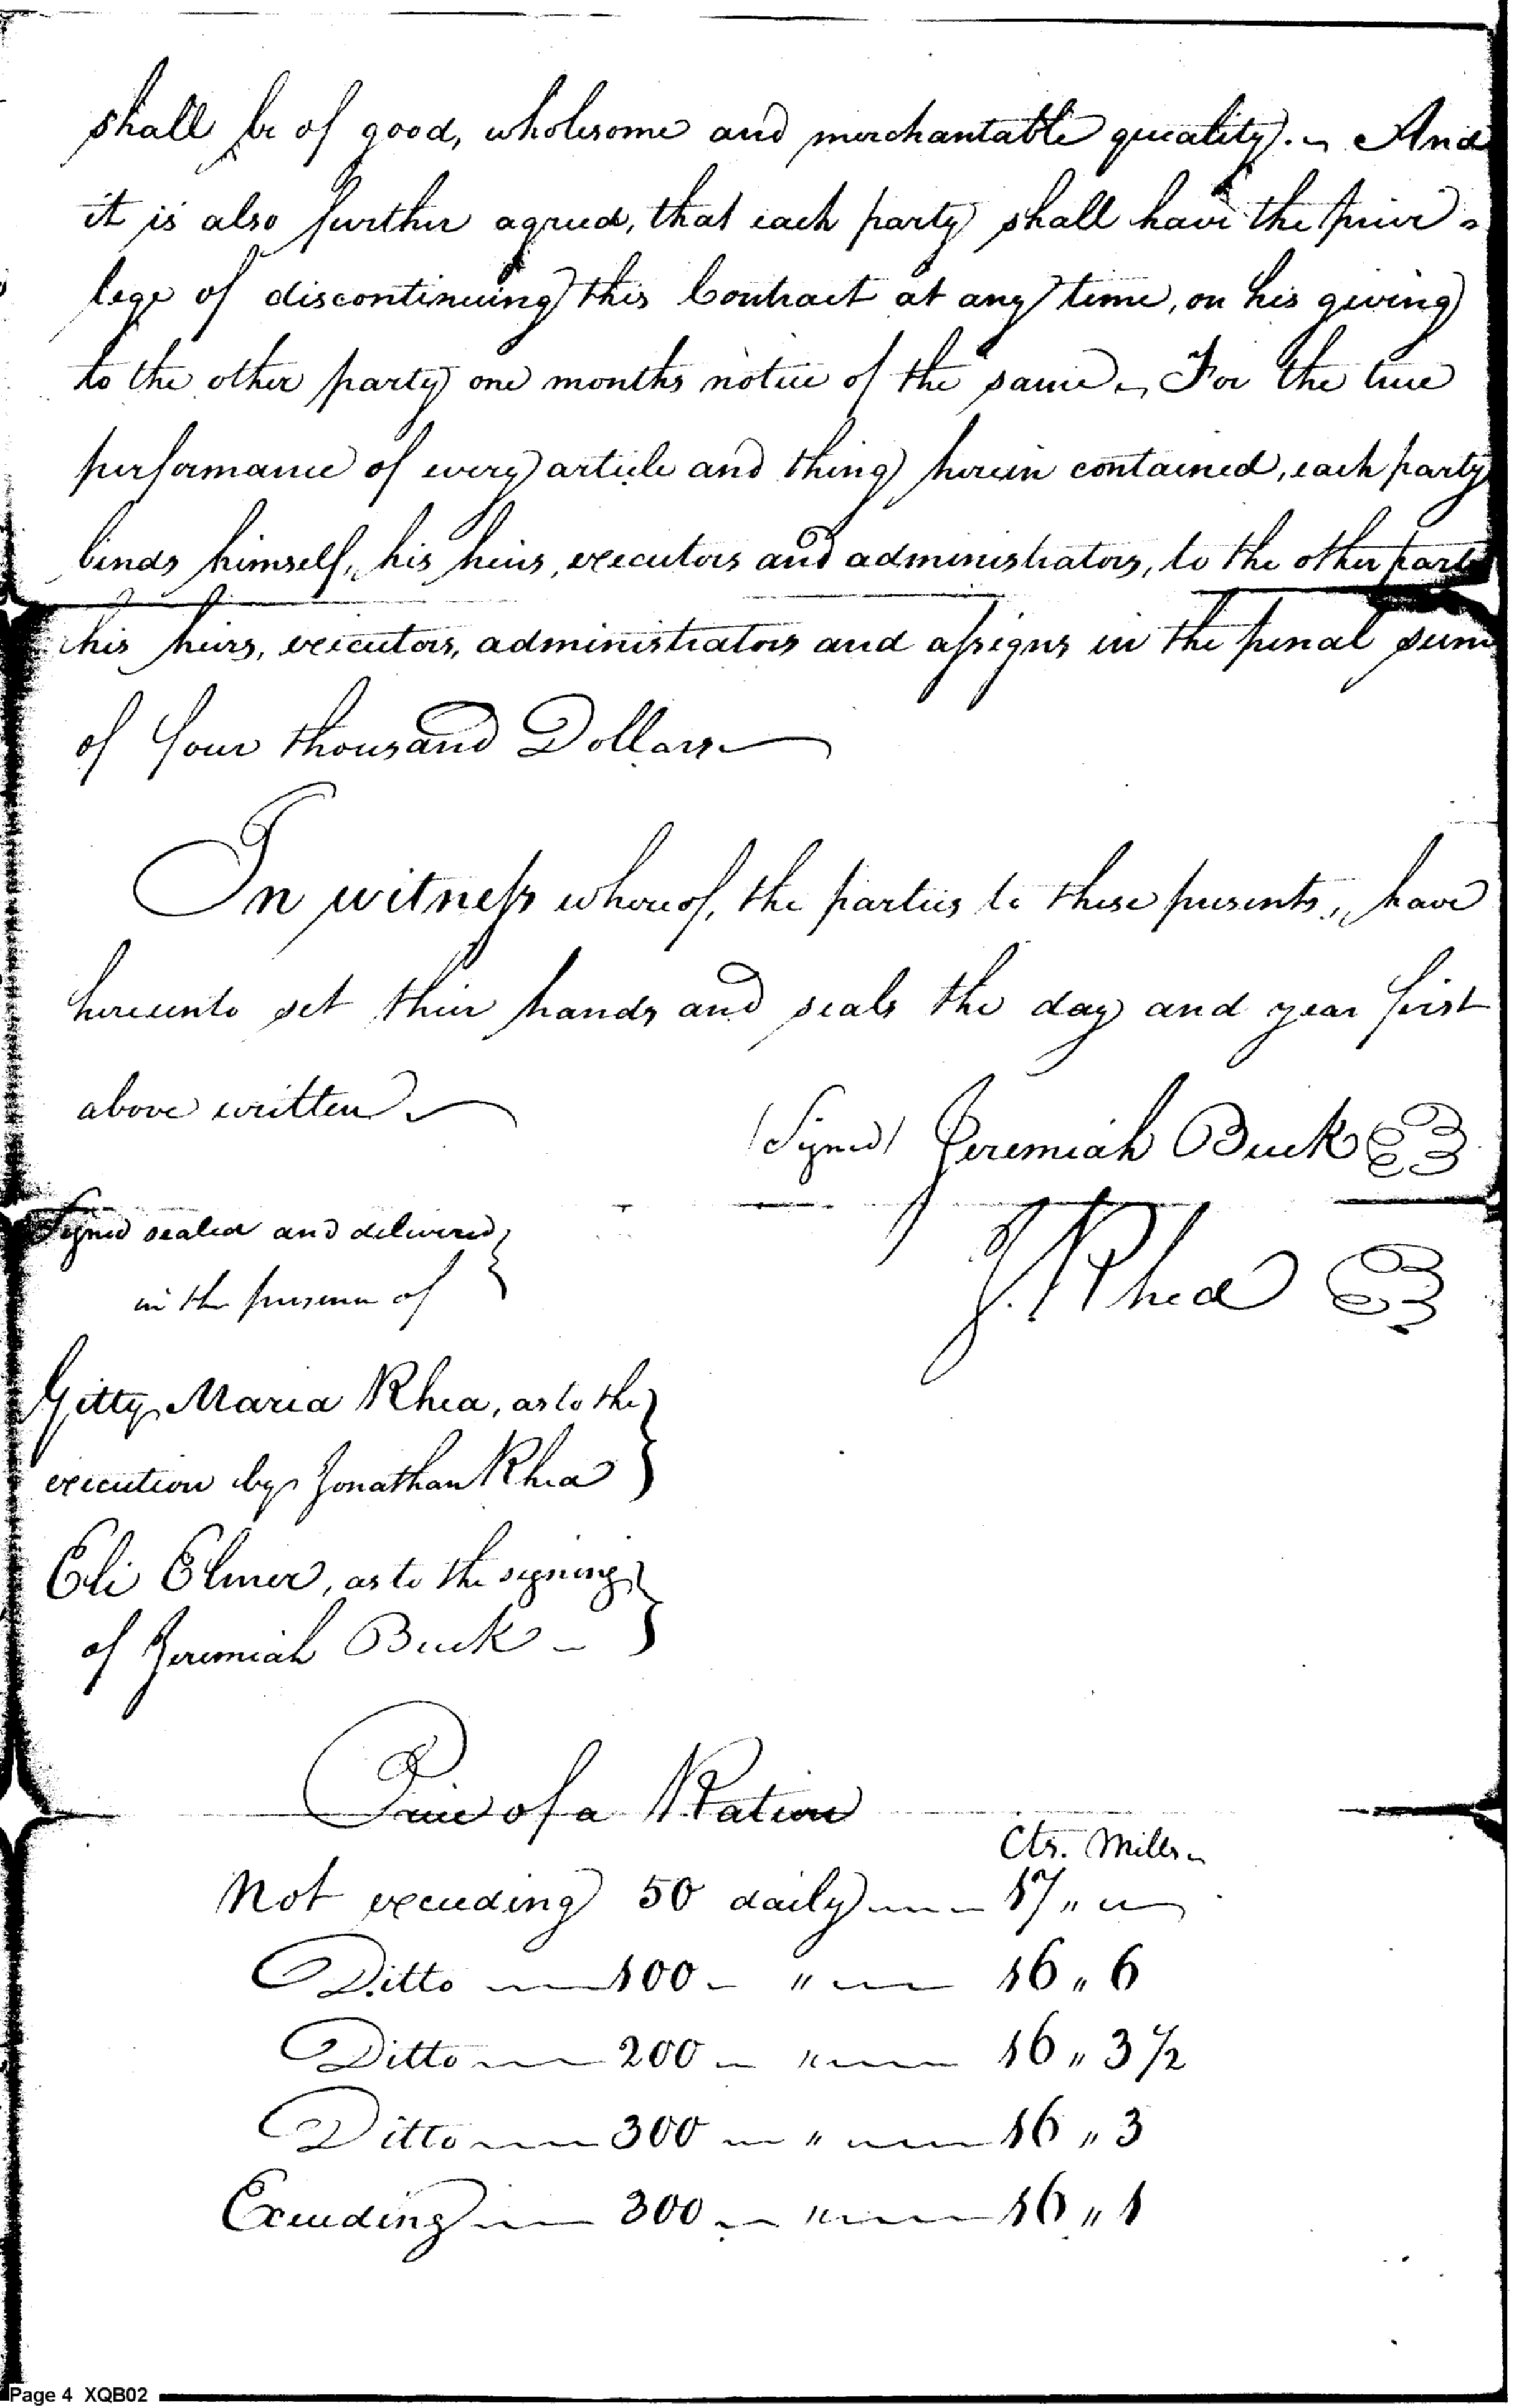 shall be of good, wholesome and merchantable quality. – And
it is also further agreed, that each party shall have the privi=
lege of discontinuing this Contract at any time, on his giving
to the other party one months notice of the same – For the true
performance of every article and thing herein contained, each party
binds himself, his heirs, executors and administrators, to the other part
his heirs, executors, administrators and assigns in the penal sum
of four thousand Dollars –
In witness whereof, the parties to these presents, have
hereunto set their hands and seals the day and year first
above written –
(Signed) Jeremiah Buck
J. Rhea
Signed sealed and delivered
in the presence of
Gitty Maria Rhea, as to the
execution by Jonathan Rhea
Eli Elmer, as to the signing
of Jeremiah Buck –
Price of a Ration
Cts. Mills –
Not exceeding 50 daily — 17 „ —
Ditto — 100 – „ — 16 „ 6
Ditto — 200 – „ — 16 „ 3 1/2
Ditto — 300 — „ — 16 „ 3
Exceeding — 300 — „ — 16 „ 1
Page 4 XQB02